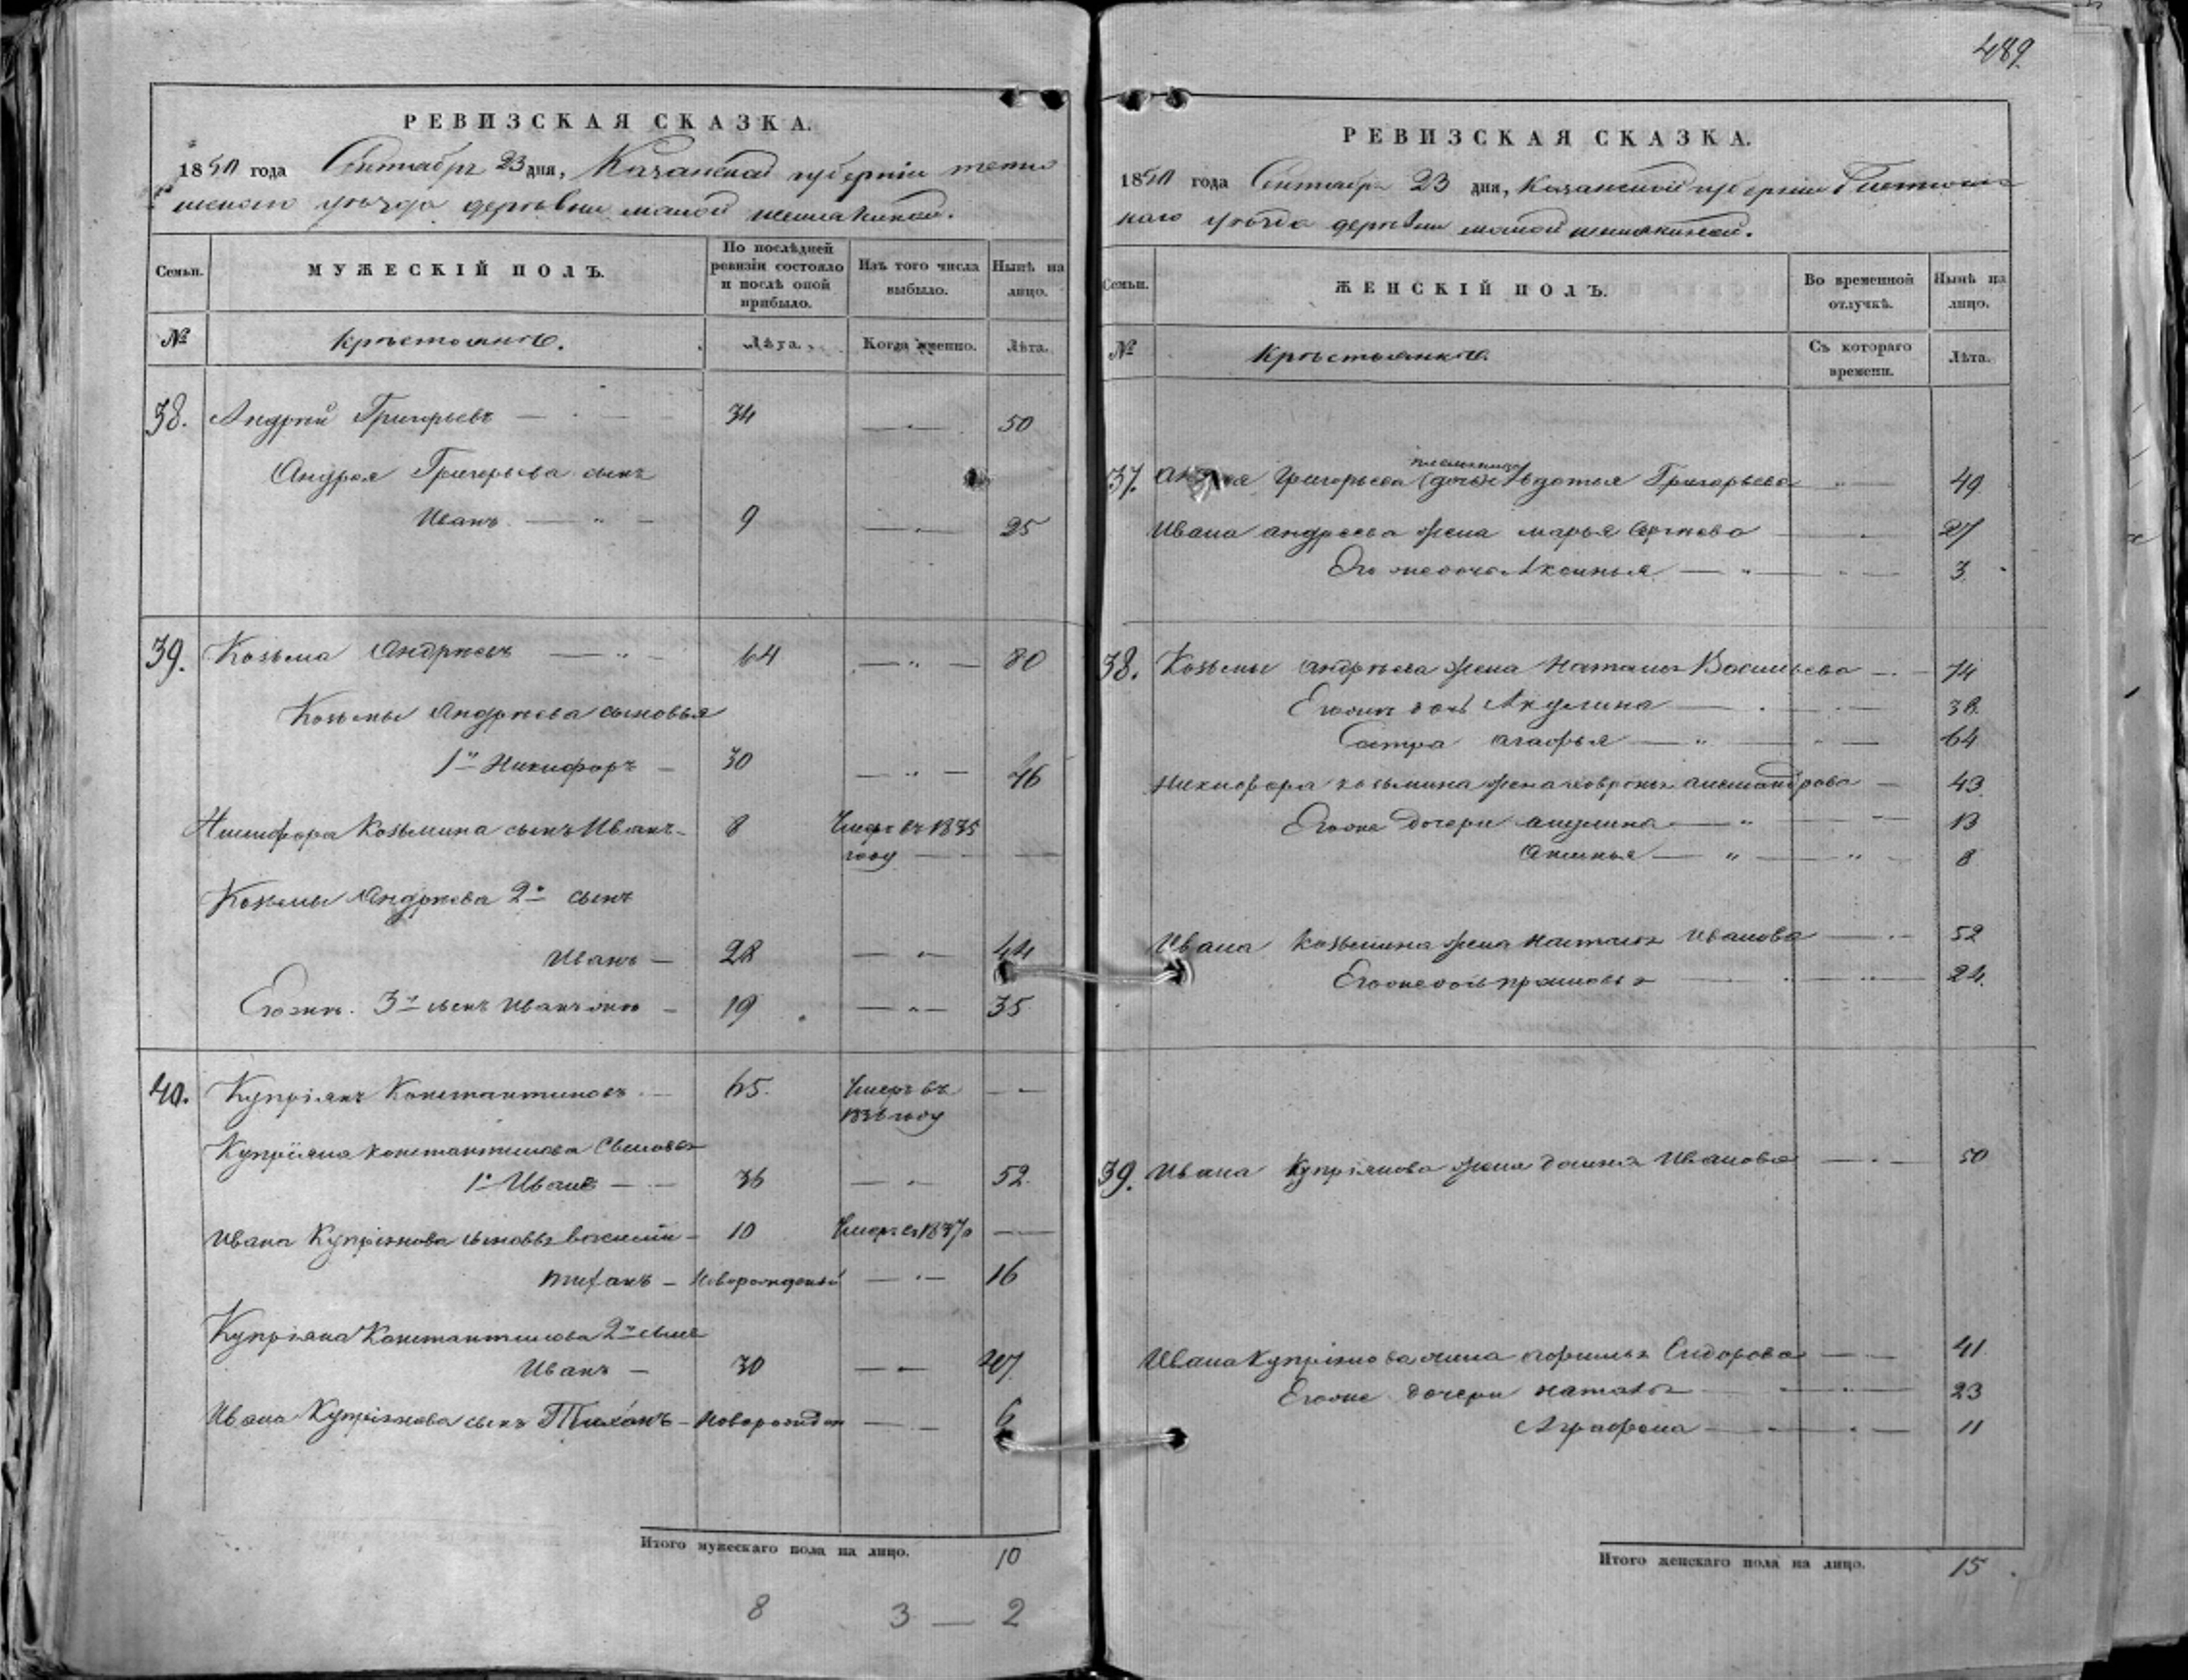 489.
РЕВИЗСКАЯ СКАЗКА.
1850 года Сентября 23 дня, Казанской губерніи тетю
шскаго уѣзда деревни малой шемякиной.
Семьи. МУЖЕСКІЙ ПОЛЪ. По послѣдней ревизіи состояло и послѣ оной прибыло. Изъ того числа выбыло. Нынѣ на лицо.
№ Крѣстьянѣ. Лѣта. Когда именно. Лѣта.
38. Андрѣй Григорьевъ — 34 — 50
Андрея Григорьева сынъ
Иванъ — 9 — 25
39. Козьма Андрѣевъ — 64 — 80
Козьмы Андрѣева сыновья
1й Никифоръ — 30 — 46
Никифора Козьмина сынъ Иванъ — 8 Умеръ въ 1835
году —
Козьмы Андрѣева 2й сынъ
Иванъ — 28 — 44
Егоже 3й сынъ Иванъ же — 19 — 35
40. Купріянъ Константиновъ — 65. Умеръ въ —
году
Купріяна константинова Сыновья
1й Иванъ — 36 — 52.
Ивана Купріянова сыновья василій — 10 Умеръ въ 1837 —
— Новорожденый — 16
Купріяна Константинова 2й сынъ
Иванъ — 30 —
Ивана Купріянова сынъ Тиханъ — Новорожден — 6
Итого мужескаго пола на лицо. 10
8 3 — 2
РЕВИЗСКАЯ СКАЗКА.
1850 года Сентября 23 дня, Казанской губерніи Тетюшс
каго уѣзда деревни малой шемякиной.
Семьи. ЖЕНСКІЙ ПОЛЪ. Во временной отлучкѣ. Нынѣ на лицо.
№ Крѣстьянкѣ. Съ котораго времени. Лѣта.
37. Григорьева Авдотья Григорьева — 49
Ивана андреева жена марья — 27
Его же дочь Аксинья — 3.
38. Козьмы андрѣева жена Наталья Васильева — 74
Егоже дочь Акулина — 38.
Сестра агафья — 64
Никифора козьмина жена — 43
Егоже дочери акулина — 13
Аксинья — 8
Ивана козьмина жена наталья Иванова — 52
Егоже дочь прасковья — 24.
39. Ивана Купріянова жена домна Иванова — 50
Ивана Купріянова жена Сидорова — 41
Егоже дочери наталья — 23
Аграфена — 11
Итого женскаго пола на лицо. 15